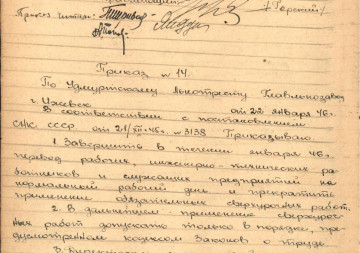 Приказ читали:
/Герский/
Приказ № 14.
По Удмуртскому Льнотресту Главльнозавод
г. Ижевск
от 22 января 46.
В соответствии с постановлением
СНК СССР от 21/XII-45г. №3138 Приказываю
1. Завершить в течении января 46 г.
перевод рабочих, инженерно-технических ра-
ботников и служащих предприятий на
нормальный рабочий день и прекратить
применение обязательных сверхурочных работ.
2. В дальнейшем применение сверхуроч-
ных работ допускать только в порядке, пре-
дусмотренном кодексом Законов о труде.